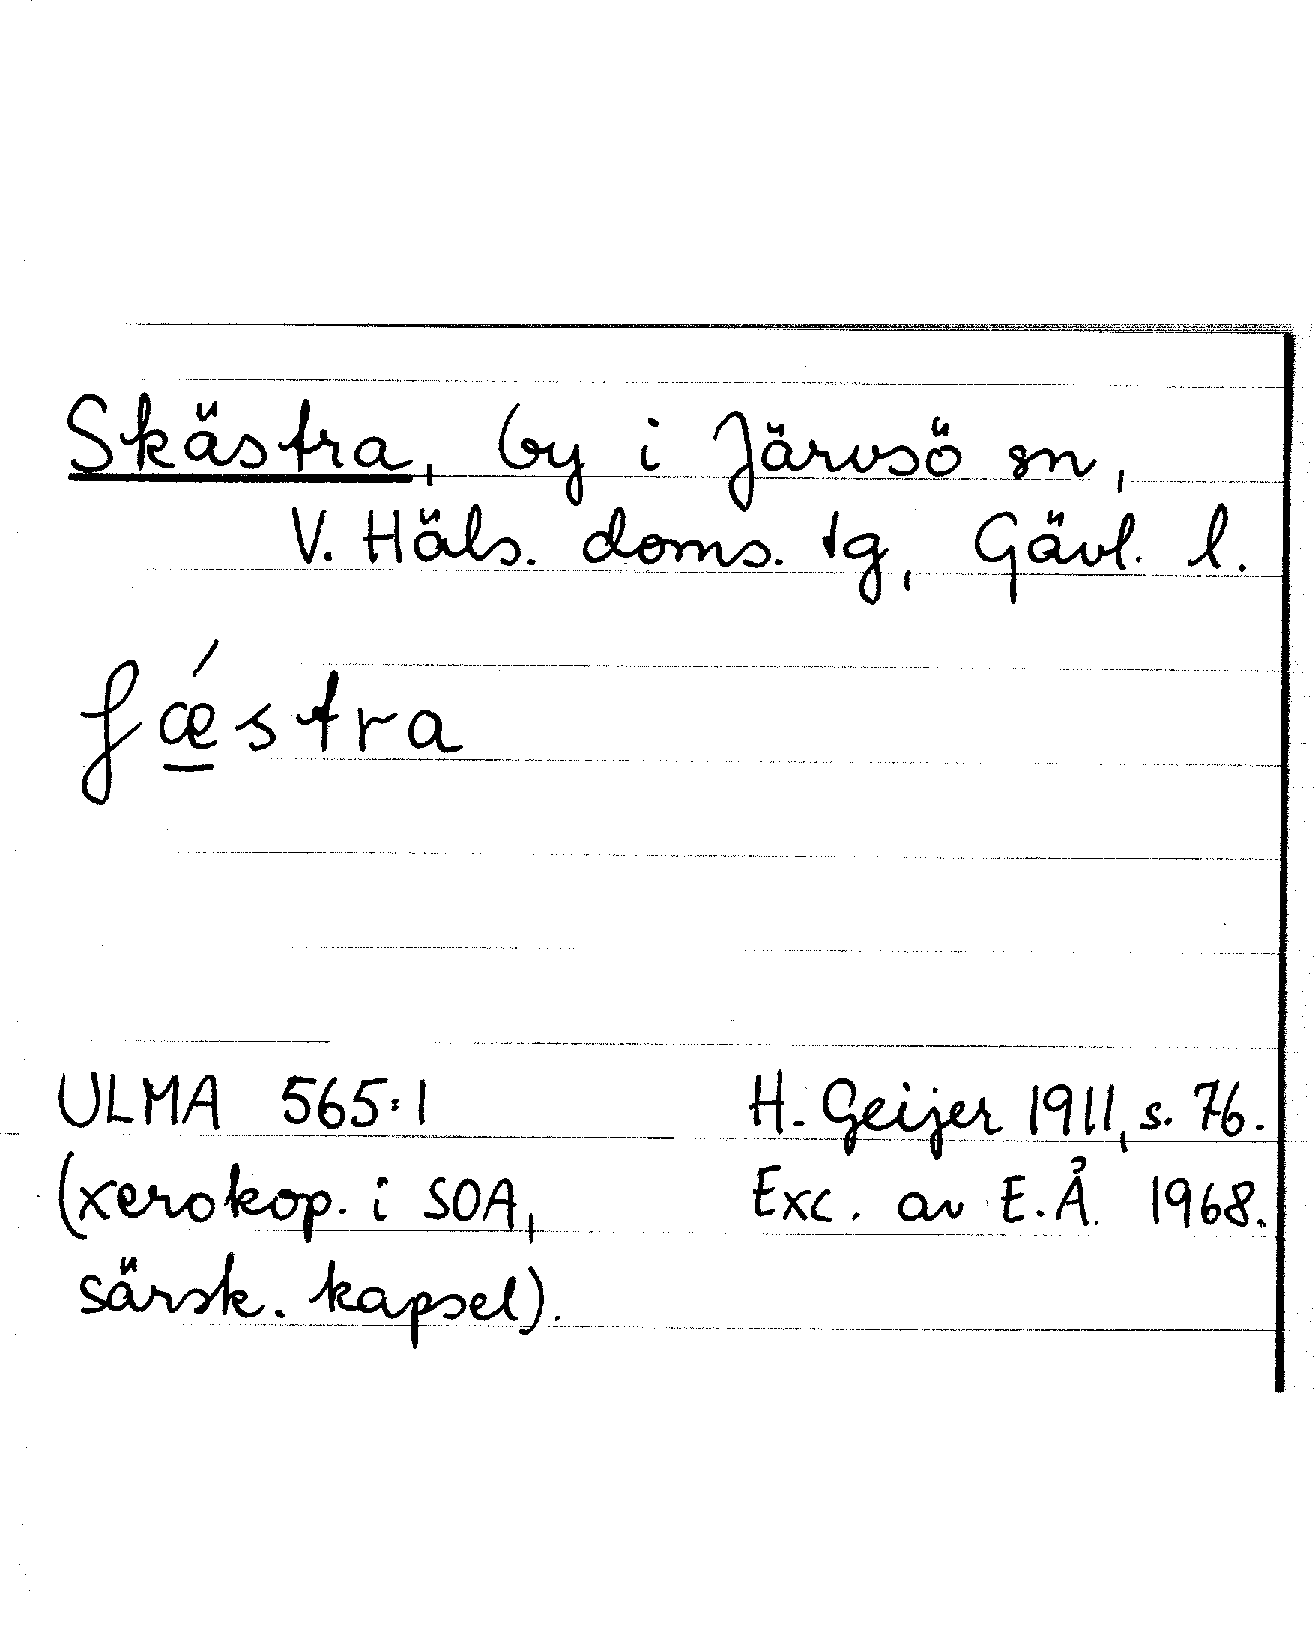 Skästra, by i Järvsö sn,
V. Häls. doms. tg, Gävl. l.
ʃǽ̠stra
ULMA 565:1 H. Geijer 1911, s. 76.
(xerokop. i SOA, Exc. av E.Å. 1968.
särsk. kapsel).